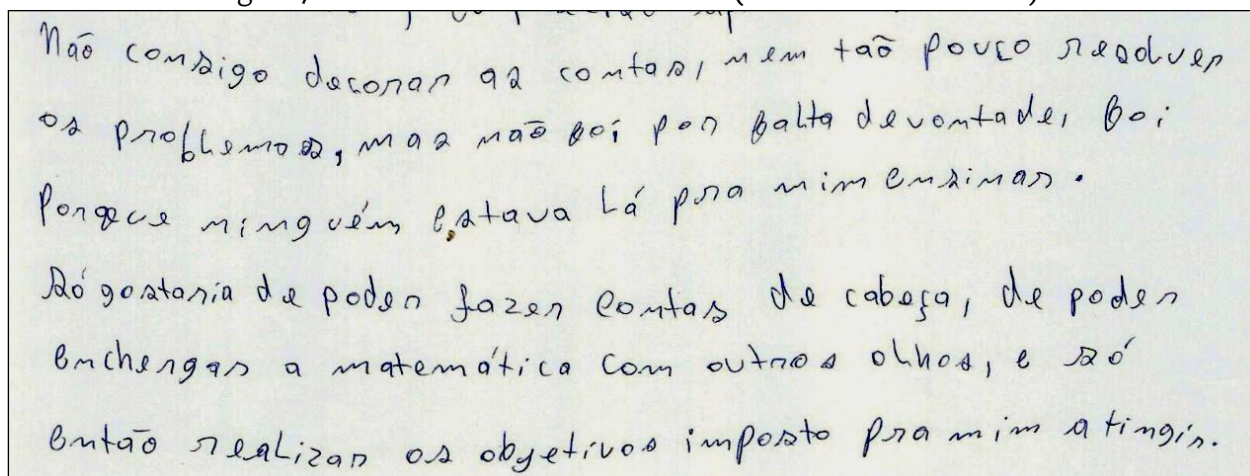 Não consigo decorar as contas, nem tão pouco resolver
os problemas, mas não foi por falta de vontade, foi
Porque ninguém estava lá pra mim ensinar.
Só gostaria de poder fazer contas de cabeça, de poder
enchergar a matemática com outros olhos, e só
então realizar os obgetivos imposto pra mim atingir.